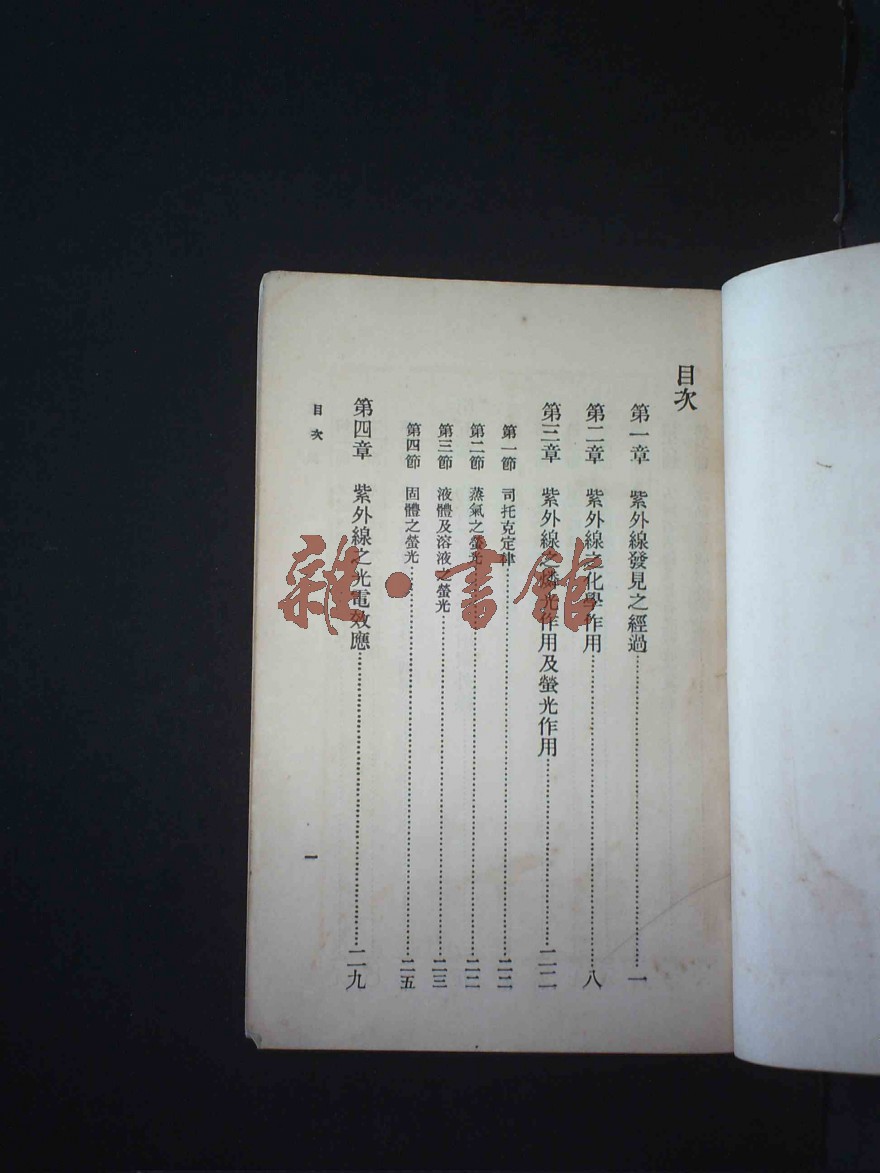 目次
第一章 紫外線發見之經過……一
第二章 紫外線之化學作用……八
第三章 紫外線之燐光作用及螢光作用……二二
第一節 司托克定律……二二
第二節 蒸氣之螢光……二二
第三節 液體及溶液之螢光……二三
第四節 固體之螢光……二五
第四章 紫外線之光電效應……二九
目次
一
雜·書館